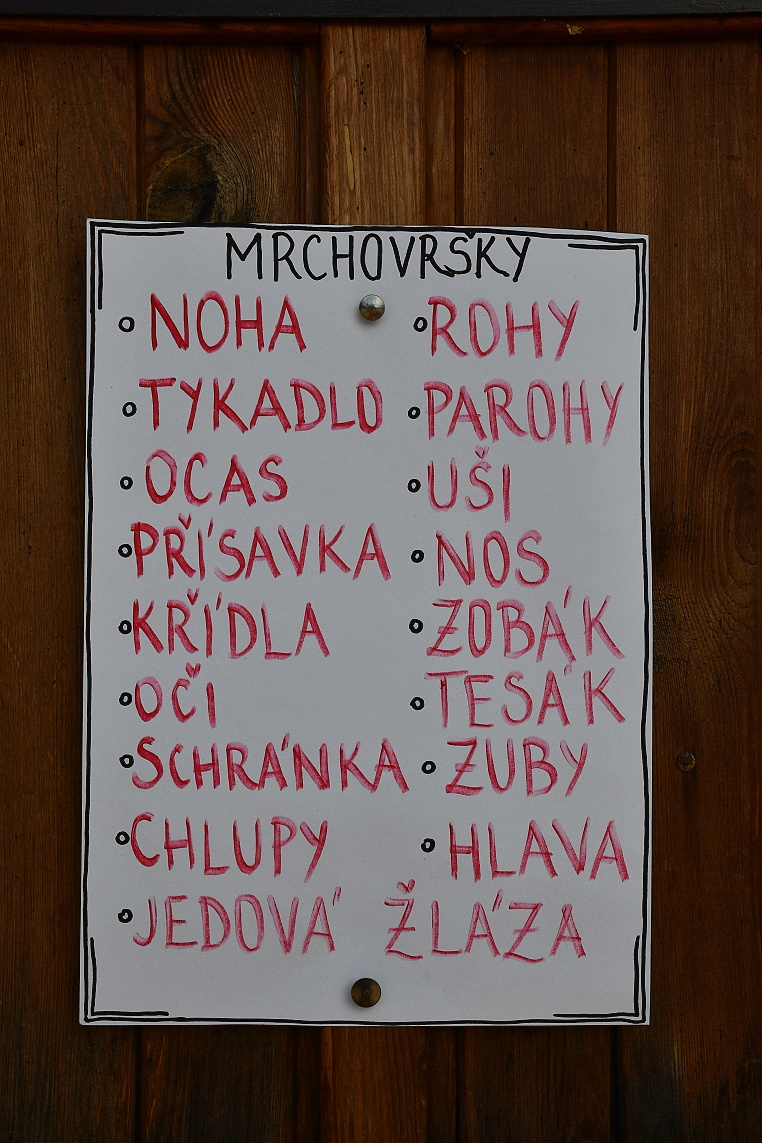 MRCHOVRŠKY
NOHA
TYKADLO
OCAS
PŘÍSAVKA
KŘÍDLA
OČI
SCHRÁNKA
CHLUPY
JEDOVÁ ŽLÁZA
ROHY
PAROHY
UŠI
NOS
ZOBÁK
TESÁK
ZUBY
HLAVA